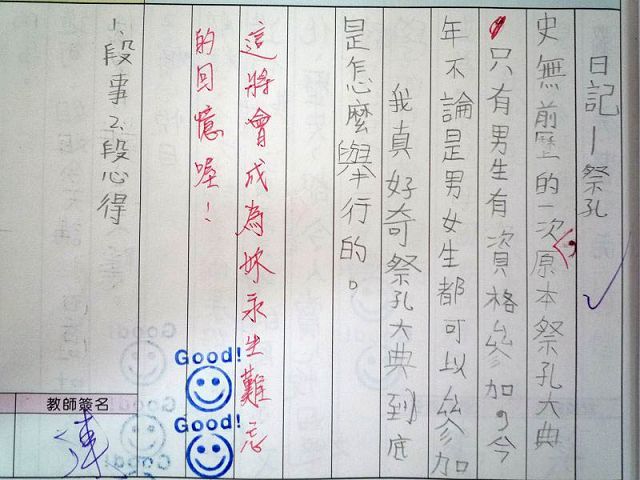 日記—祭孔
史無前歷的一次，原本祭孔大典
只有男生有資格參加，今
年不論是男女生都可以參加
我真好奇祭孔大典到底
是怎麼舉行的。
這將會成為妳永生難忘
的回憶喔！
Good!
Good!
1、段事2、段心得
教師簽名